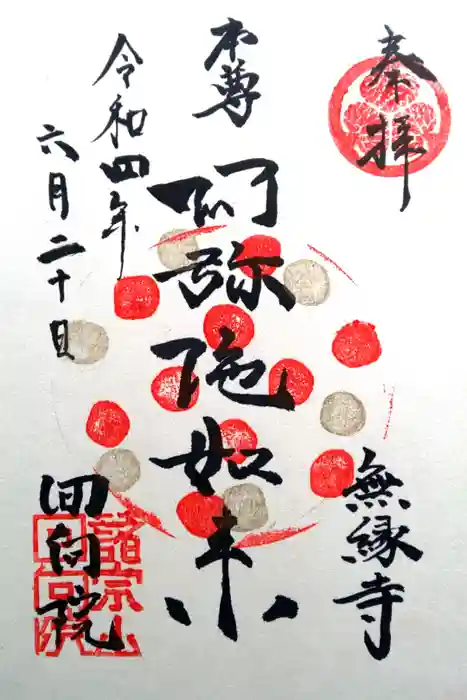 奉拝
無縁寺
本尊
阿弥陀如来
令和四年
六月二十日
回向院